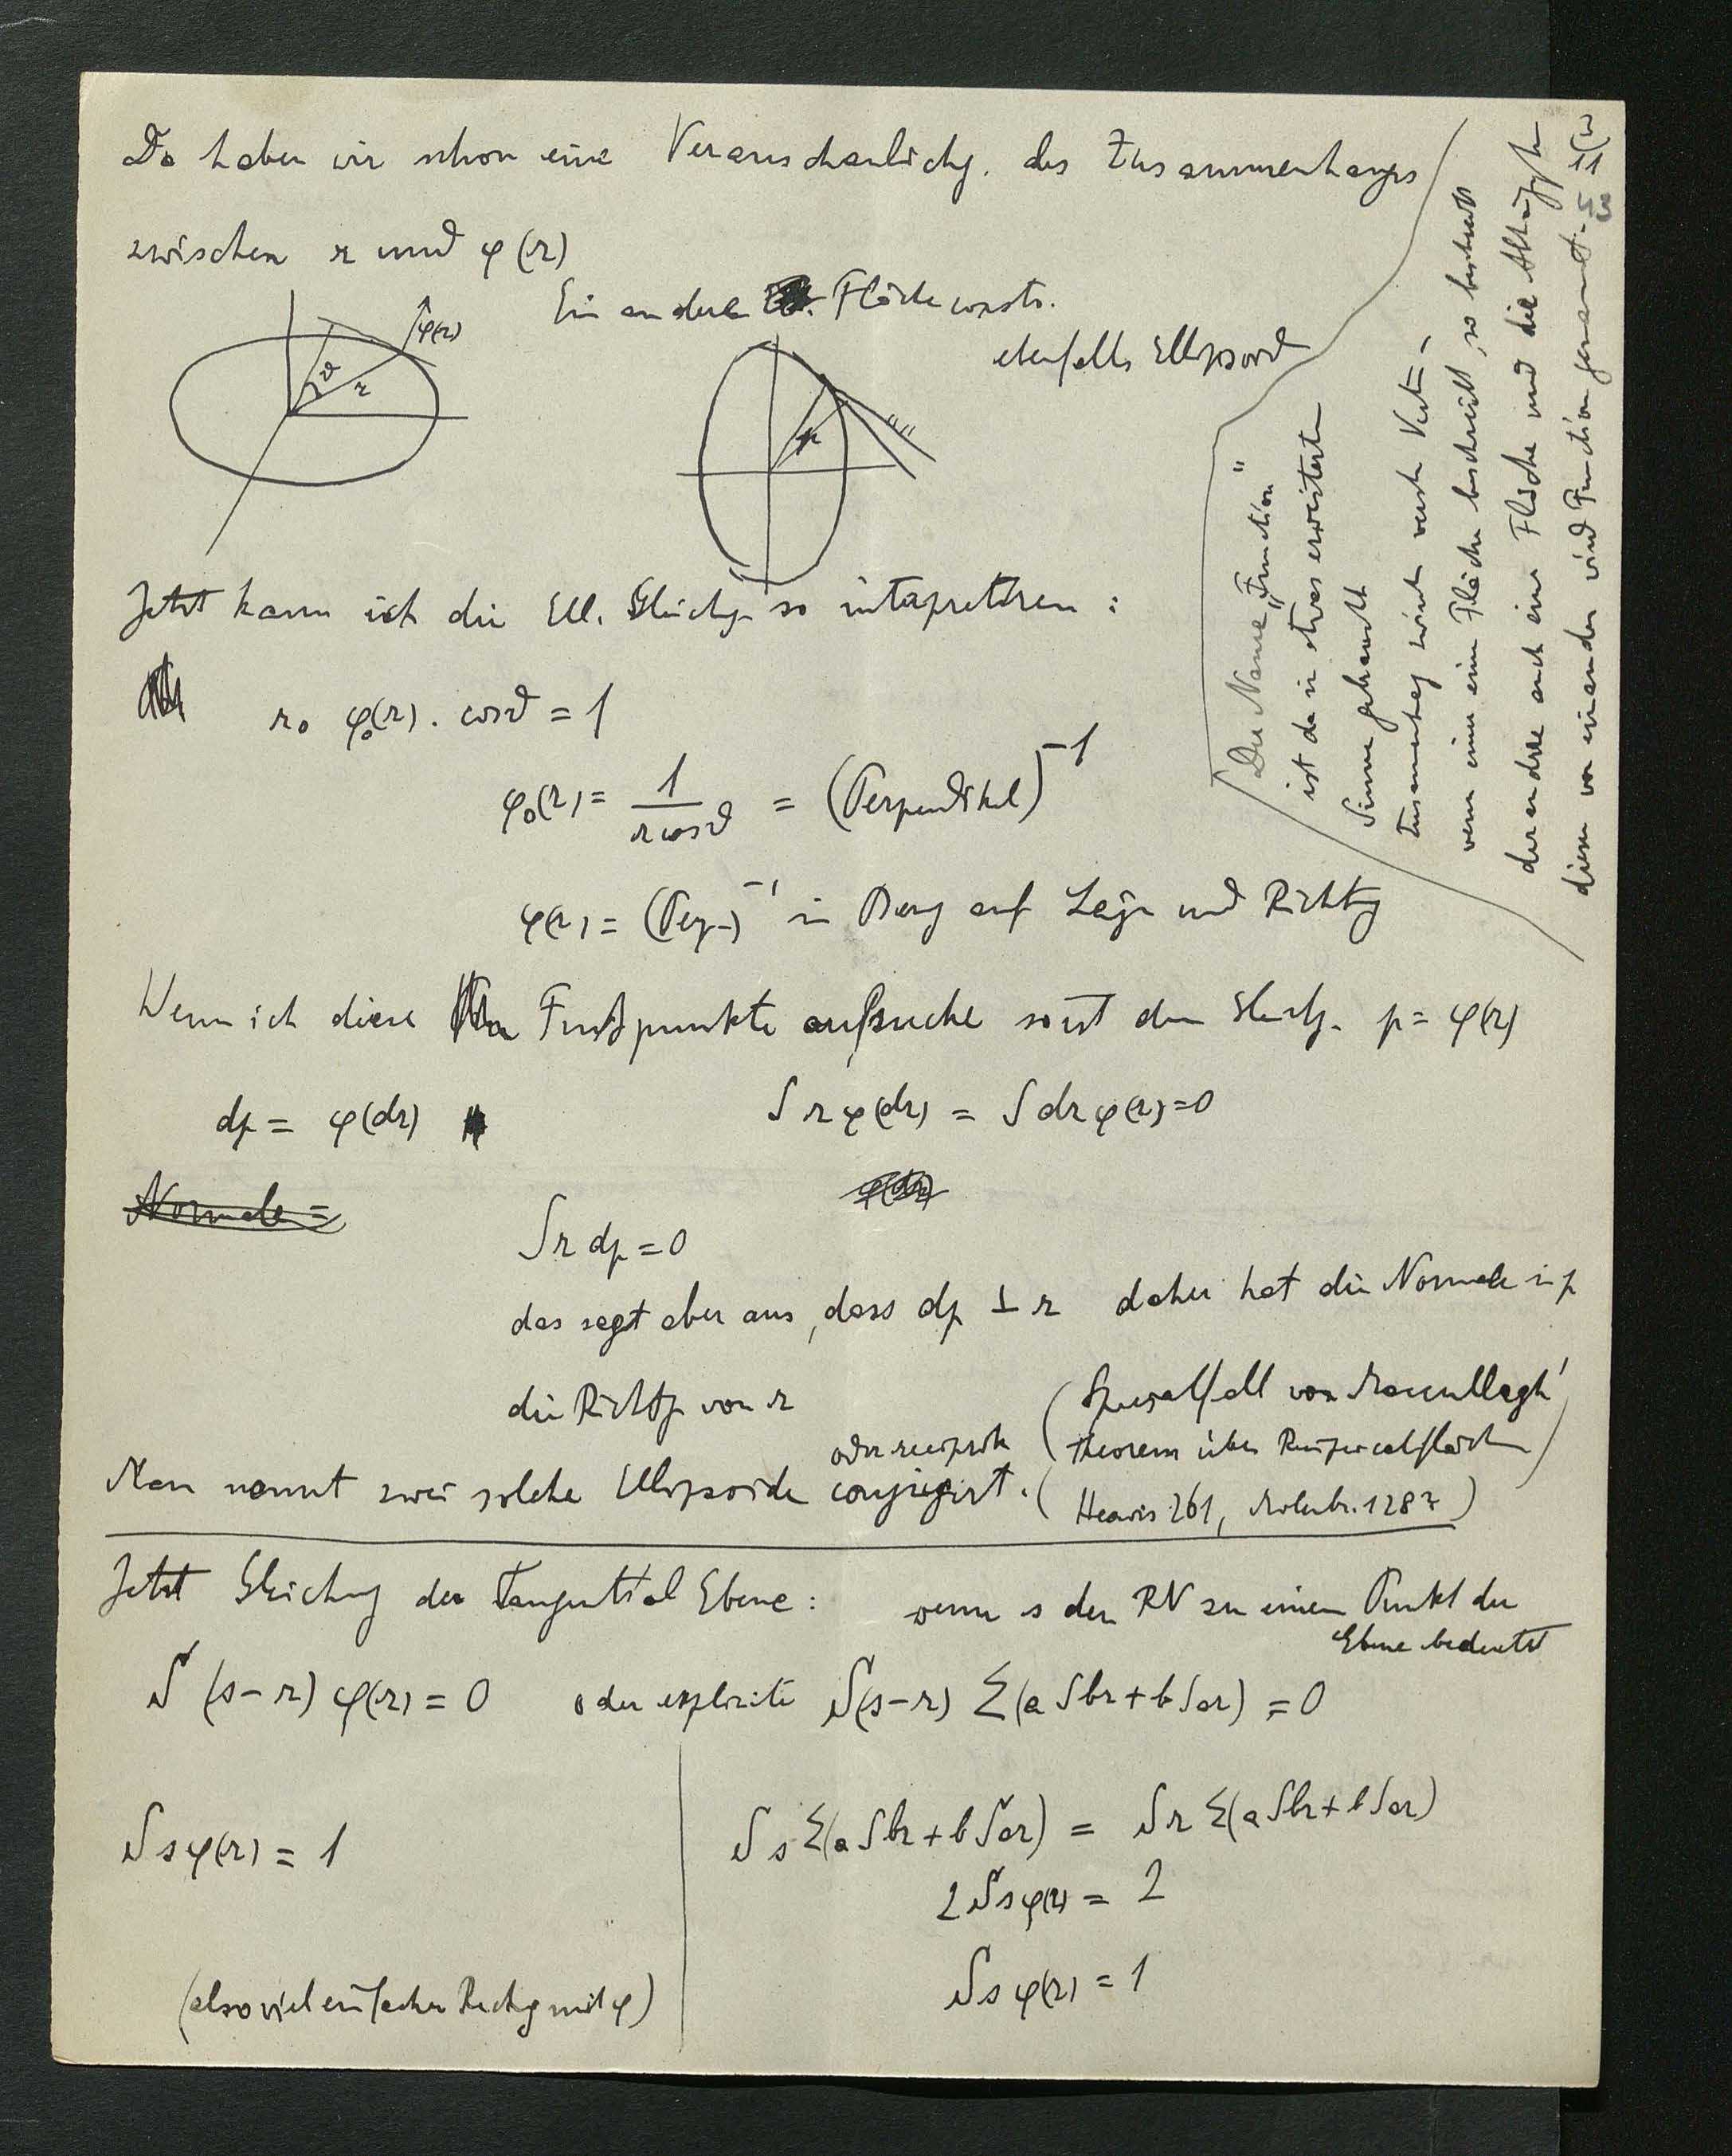 Da haben wir schon eine Veranschaulichg. des Zusammenhangs
zwischen r und φ(r)
Ein andere Fläche constr.
ebenfalls Ellipsoid
φ(r)
ϑ
r
p
Jetzt kann ich die Ell. Gleichg so interpretiren :
r₀ φ₀(r) . cosϑ = 1
φ₀(r) = 1/(r cosϑ) = (Perpendikel)⁻¹
φ(r) = (Perp.)⁻¹ in Bezug auf Länge und Richtg
Wenn ich diese Fußpunkte aufsuche so ist deren Gleichg. p = φ(r)
dp = φ(dr)
S r φ(dr) = S dr φ(r) = 0
Normale =
φ(dr)
S r dp = 0
das sagt aber aus, dass dp ⊥ r daher hat die Normale in p
die Richtg von r
oder reciprok
Man nennt zwei solche Ellipsoide conjugirt.
(Spezialfall von MacCullagh'
Theorem über Reciprocalflächen)
Jetzt Gleichung der Tangential Ebene :
wenn s den RV zu einem Punkt der
Ebene bedeutet
S (s-r) φ(r) = 0 oder explicite S(s-r) Σ(a Sbr + b Sar) = 0
S s φ(r) = 1
(also viel einfacher Rechng mit φ)
S s Σ(a Sbr + b Sar) = S r Σ(a Sbr + b Sar)
2 S s φ(r) = 2
S s φ(r) = 1
Der Name „Function"
ist da in etwas erweiterten
Sinne gebraucht
wenn einer eine Fläche beschreibt, so beschreibt
der andere auch eine Fläche und die
dieser von einander wird Function genannt.